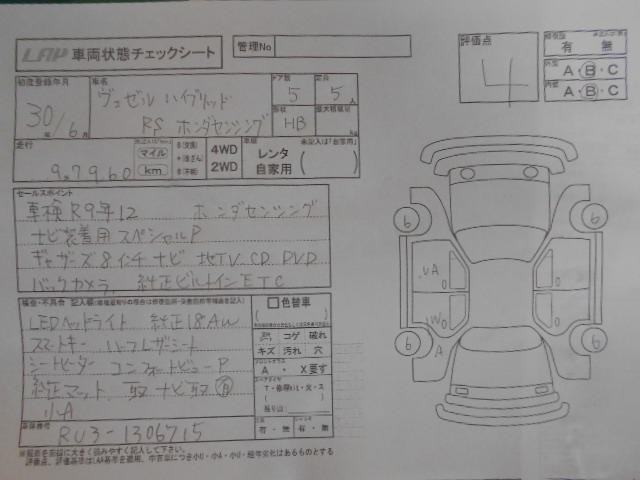 LAP 車両状態チェックシート
管理No
評価点
4
有 無
外装 A・B・C
内装 A・B・C
初度登録年月
30年/6月
車名
ヴェゼル ハイブリッド
RS ホンダセンシング
ドア数
5
定員
5人
形状
HB
最大積載量
kg
走行
9,7960
マイル
km
4WD
2WD
車歴
レンタ
自家用
セールスポイント
車検 R9年12 ホンダセンシング
ナビ装着用 スペシャルP
ギャザーズ 8インチ ナビ 地TV CD DVD
バックカメラ. 純正ビルトインETC
LEDヘッドライト 純正18AW
スマートキー ハーフレザーシート
シートヒーター コンフォートビューP
純正マット. 取 ナビ取 B
小A
色替車
コゲ 破れ
キズ 汚れ 穴
フロントガラス
A ・ X要す
有・無 有・無
車台番号
RU3-1306715
※裏面を前提に大きく読みやすく記入して下さい。
6
6
6
6
UA
W
A